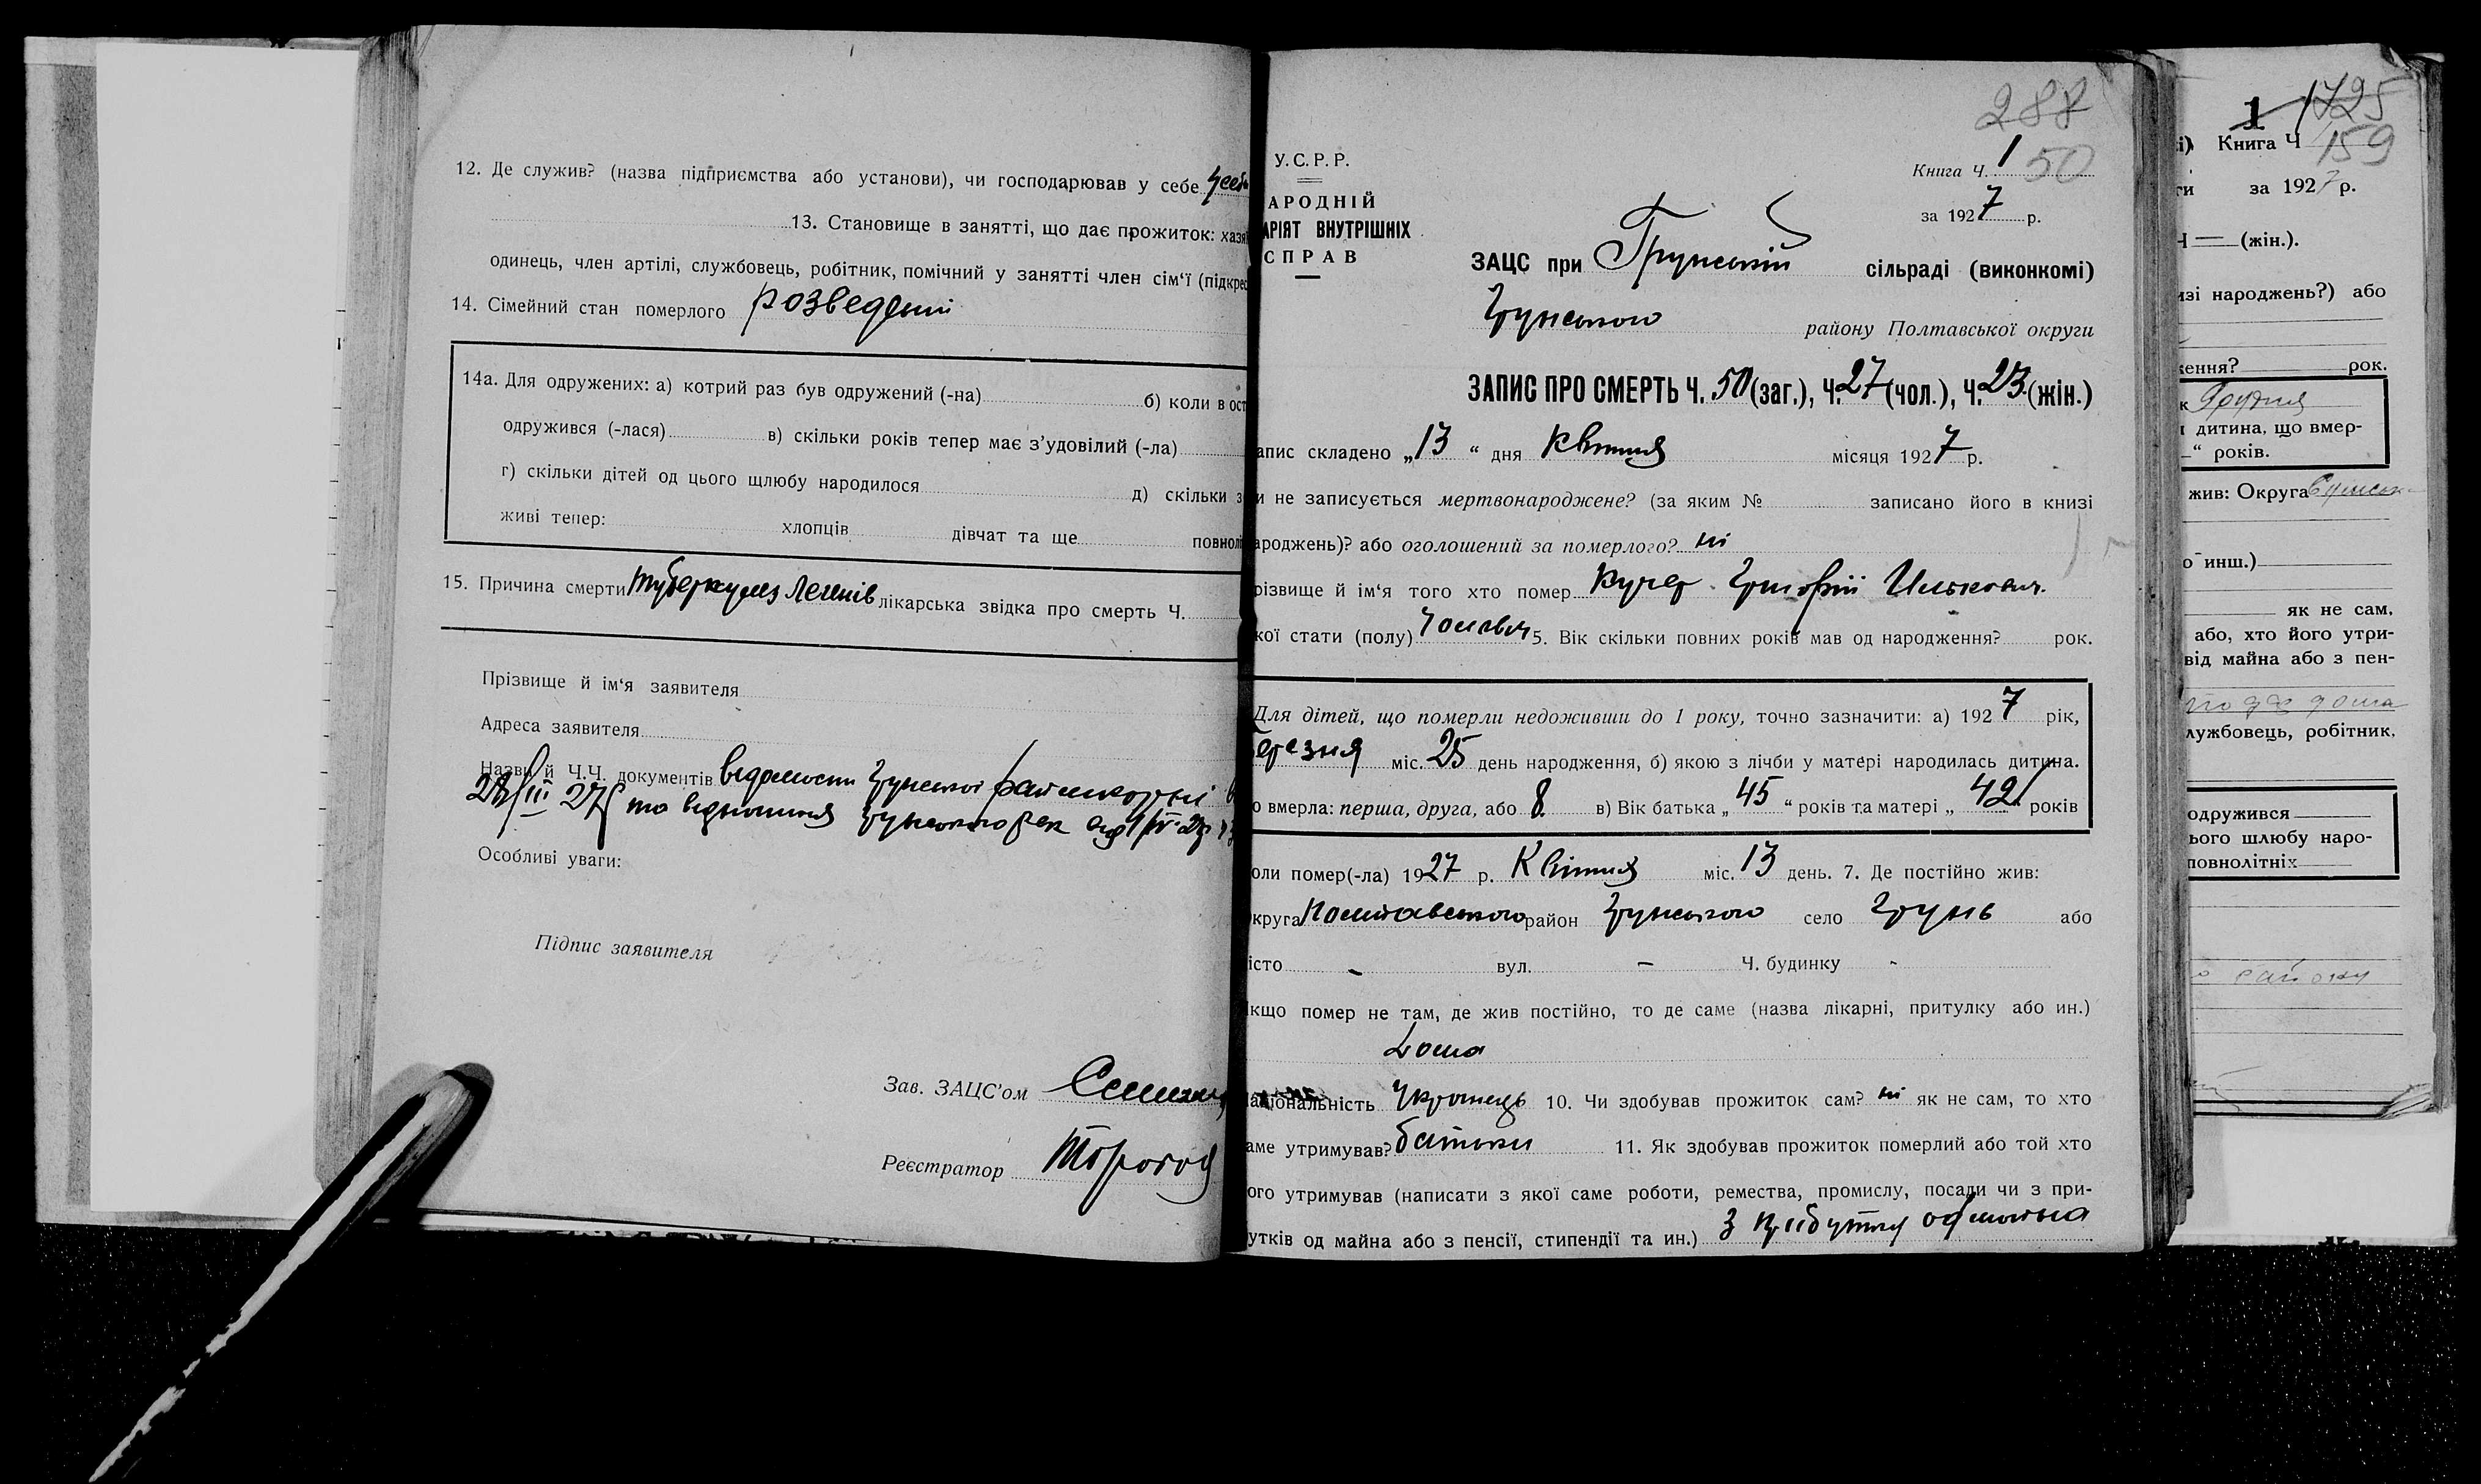 12. Де служив? (назва підприємства або установи), чи господарював у себе
13. Становище в занятті, що дає прожиток: хазя
одинець, член артілі, службовець, робітник, помічний у занятті член сім'ї (підкрес
14. Сімейний стан померлого розведений
14а. Для одружених: а) котрий раз був одружений (-на) б) коли в ост
одружився (-лася) в) скільки років тепер має з’удовілий (-ла)
г) скільки дітей од цього щлюбу народилося д) скільки з
живі тепер: хлопців дівчат та ще повнолі
15. Причина смерти туберкульоз легенів лікарська звідка про смерть Ч.
Прізвище й ім‘я заявителя
Адреса заявителя
Назви й Ч.Ч. документів ведомости Грунської
28/III 27р та відношення Грунського
Особливі уваги:
Підпис заявителя
Зав. ЗАЦС’ом
Реєстратор
288
У.С.Р.Р.
АРОДНІЙ
АРІЯТ ВНУТРІШНІХ
СПРАВ
Книга Ч. 1 50
за 1927 р.
ЗАЦС при Грунській сільраді (виконкомі)
Грунського району Полтавської округи
ЗАПИС ПРО СМЕРТЬ Ч. 50 (заг.), Ч. 27 (чол.), Ч. 23 (жін.)
апис складено „13“ дня Квітня місяця 1927 р.
и не записується мертвонароджене? (за яким № записано його в книзі
ароджень)? або оголошений за померлого? ні
різвище й ім‘я того хто помер Кучер Григорій Ількович
кої стати (полу) Чоловіч 5. Вік скільки повних років мав од народження? рок.
Для дітей, що померли недоживши до 1 року, точно зазначити: а) 1927 рік,
ерезня міс. 25 день народження, б) якою з лічби у матері народилась дитина.
о вмерла: перша, друга, або 8 в) Вік батька „45“ років та матері „42“ років
оли помер(-ла) 1927 р. Квітня міс. 13 день. 7. Де постійно жив:
круга Полтавського район Грунського село Грунь або
істо - вул. - Ч. будинку -
кщо помер не там, де жив постійно, то де саме (назва лікарні, притулку або ин.)
Дома
аціональність Українець 10. Чи здобував прожиток сам? ні як не сам, то хто
аме утримував? батьки 11. Як здобував прожиток померлий або той хто
ого утримував (написати з якої саме роботи, ремества, промислу, посади чи з при-
утків од майна або з пенсії, стипендії та ин.) З прибутку од майна
1 1725
Книга Ч 159
ти за 1927 р.
Ч — (жін.).
изі народжень?) або
кення? рок.
к Грудня
дитина, що вмер-
“ років.
жив: Округа Сумськ
о инш.)
як не сам,
або, хто його утри-
від майна або з пен-
лужбовець, робітник,
одружився
ього шлюбу наро-
повнолітніх